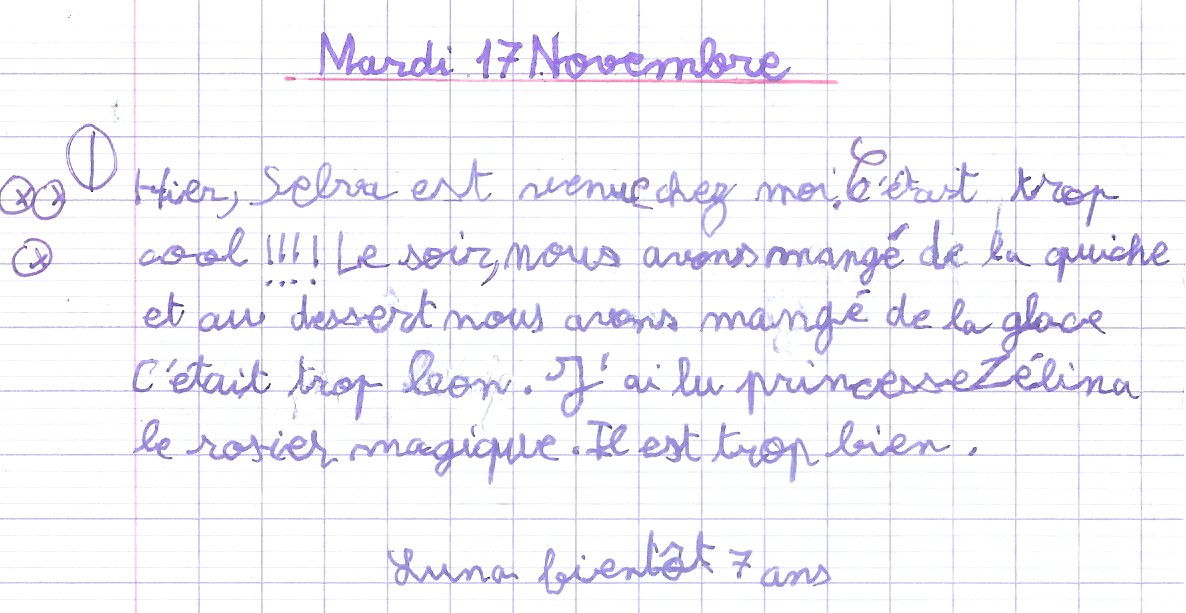 Mardi 17 Novembre
① Hier, Selva est venue chez moi. C'était trop
cool !!!! Le soir, nous avons mangé de la quiche
et au dessert nous avons mangé de la glace
C'était trop bon. J'ai lu princesse Zélina
le rosier magique. Il est trop bien.
Luna bientôt 7 ans